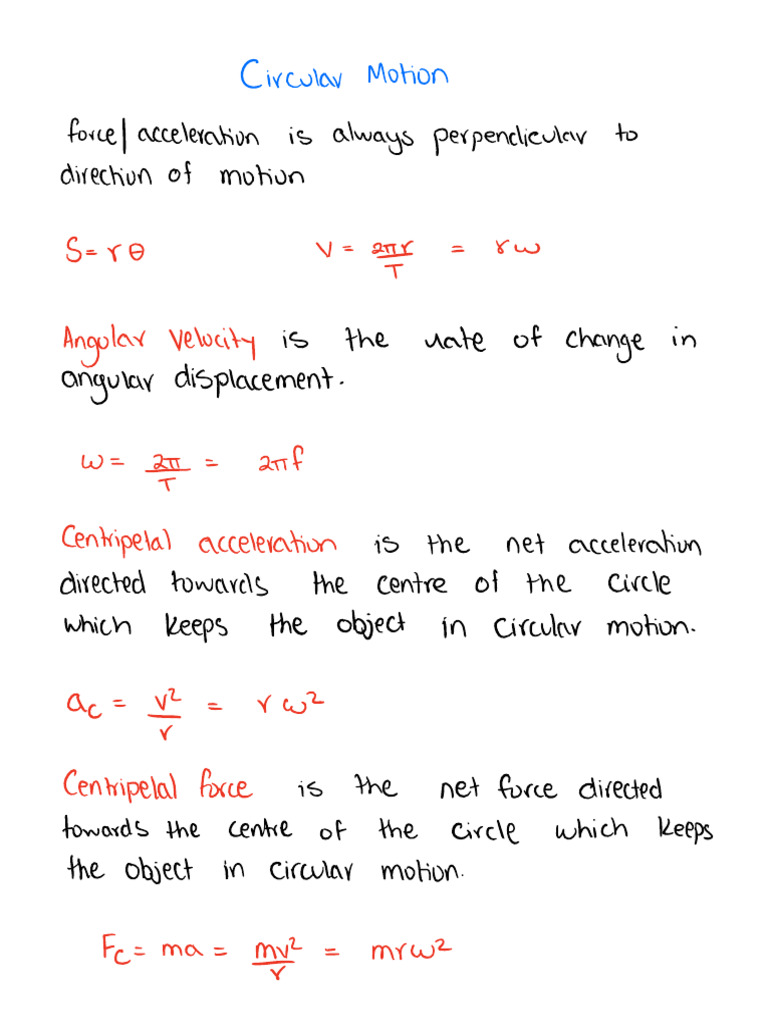 Circular Motion
force/acceleration is always perpendicular to
direction of motion
S = rθ    v = 2πr/T = rω
Angular Velocity is the rate of change in
angular displacement.
ω = 2π/T = 2πf
Centripetal acceleration is the net acceleration
directed towards the centre of the circle
which keeps the object in circular motion.
a_c = v²/r = rω²
Centripetal force is the net force directed
towards the centre of the circle which keeps
the object in circular motion.
F_c = ma = mv²/r = mrω²